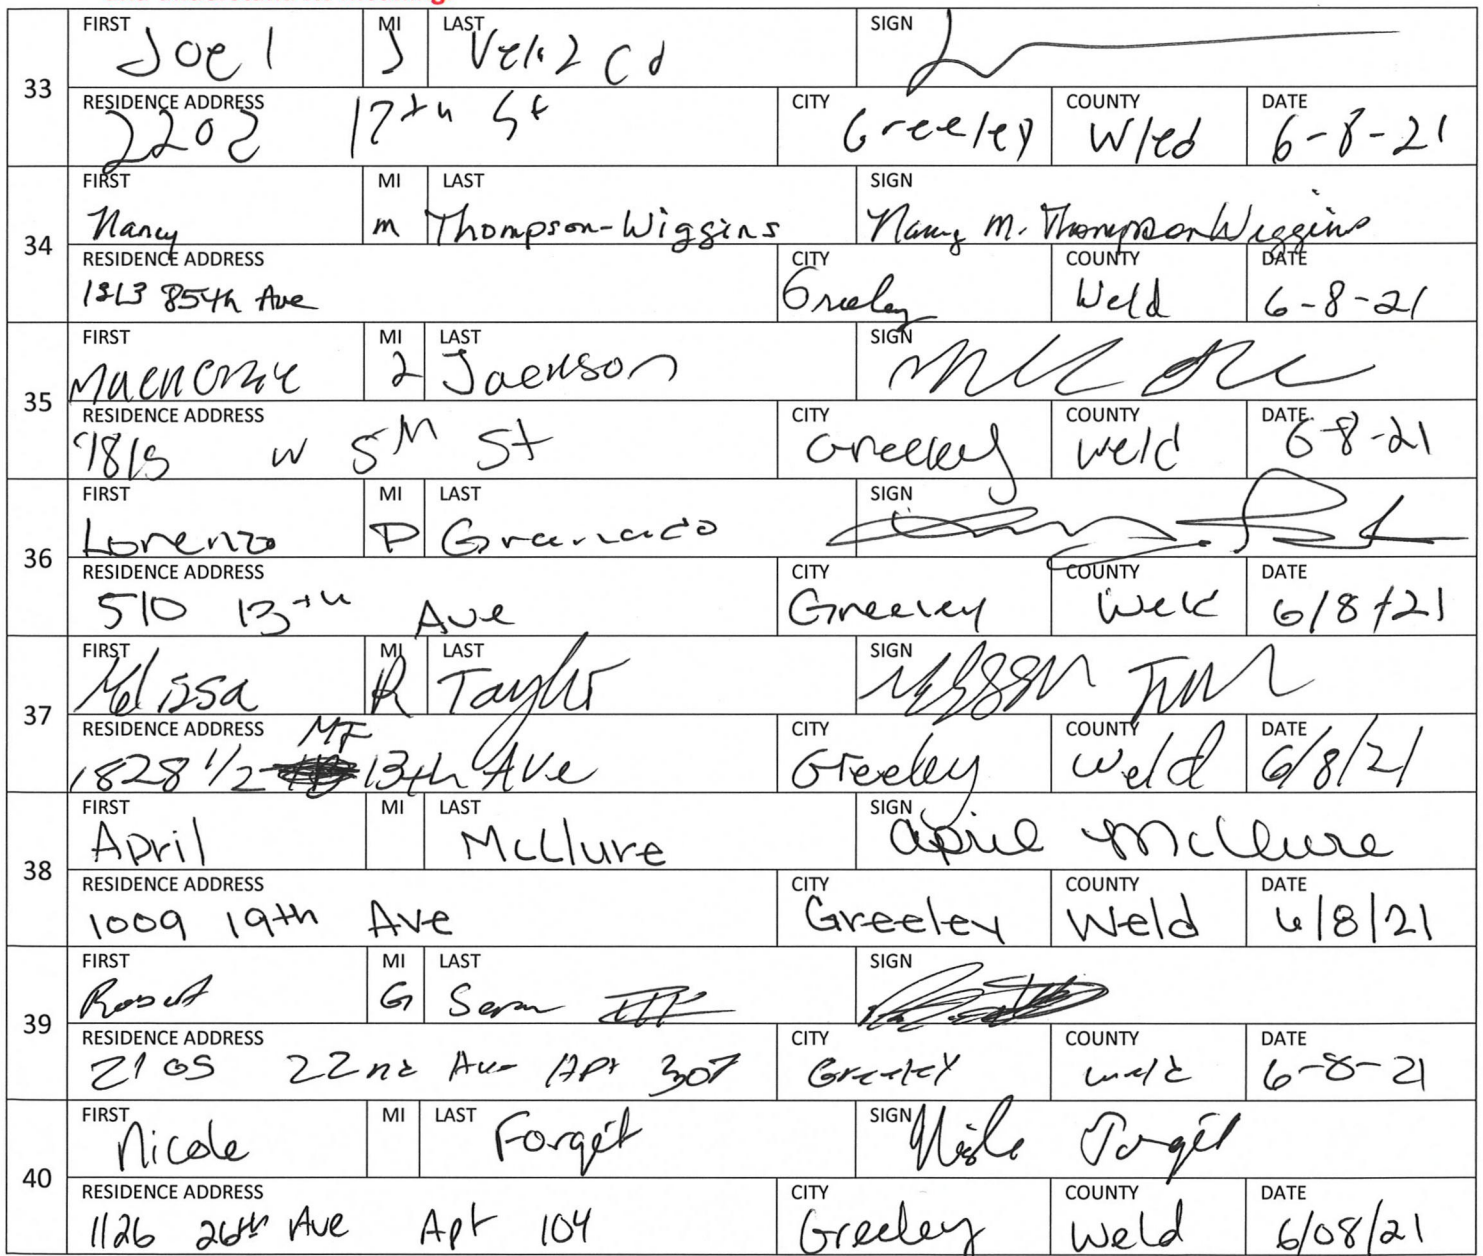 FIRST Joel MI J LAST SIGN
33
RESIDENCE ADDRESS 2202 17th St CITY Greeley COUNTY Wled DATE 6-8-21
FIRST Nancy MI m LAST Thompson-Wiggins SIGN Nancy M. Thompson Wiggins
34
RESIDENCE ADDRESS 85th Ave CITY Greeley COUNTY Weld DATE 6-8-21
FIRST Mackenzie MI LAST Jackson SIGN
35
RESIDENCE ADDRESS W 5th St CITY Greeley COUNTY Weld DATE 6-8-21
FIRST Lorenzo MI P LAST Granado SIGN
36
RESIDENCE ADDRESS 510 13th Ave CITY Greeley COUNTY Weld DATE 6/8/21
FIRST Melissa MI R LAST Taylor SIGN
37
RESIDENCE ADDRESS 1828 1/2 13th Ave CITY Greeley COUNTY Weld DATE 6/8/21
FIRST April MI LAST McLlure SIGN April McClure
38
RESIDENCE ADDRESS 1009 19th Ave CITY Greeley COUNTY Weld DATE 6/8/21
FIRST Robert MI G LAST SIGN
39
RESIDENCE ADDRESS 2105 22nd Ave Apt 307 CITY Greeley COUNTY Weld DATE 6-8-21
FIRST Nicole MI LAST Forgét SIGN Nicole Forgét
40
RESIDENCE ADDRESS 1126 26th Ave Apt 104 CITY Greeley COUNTY Weld DATE 6/08/21